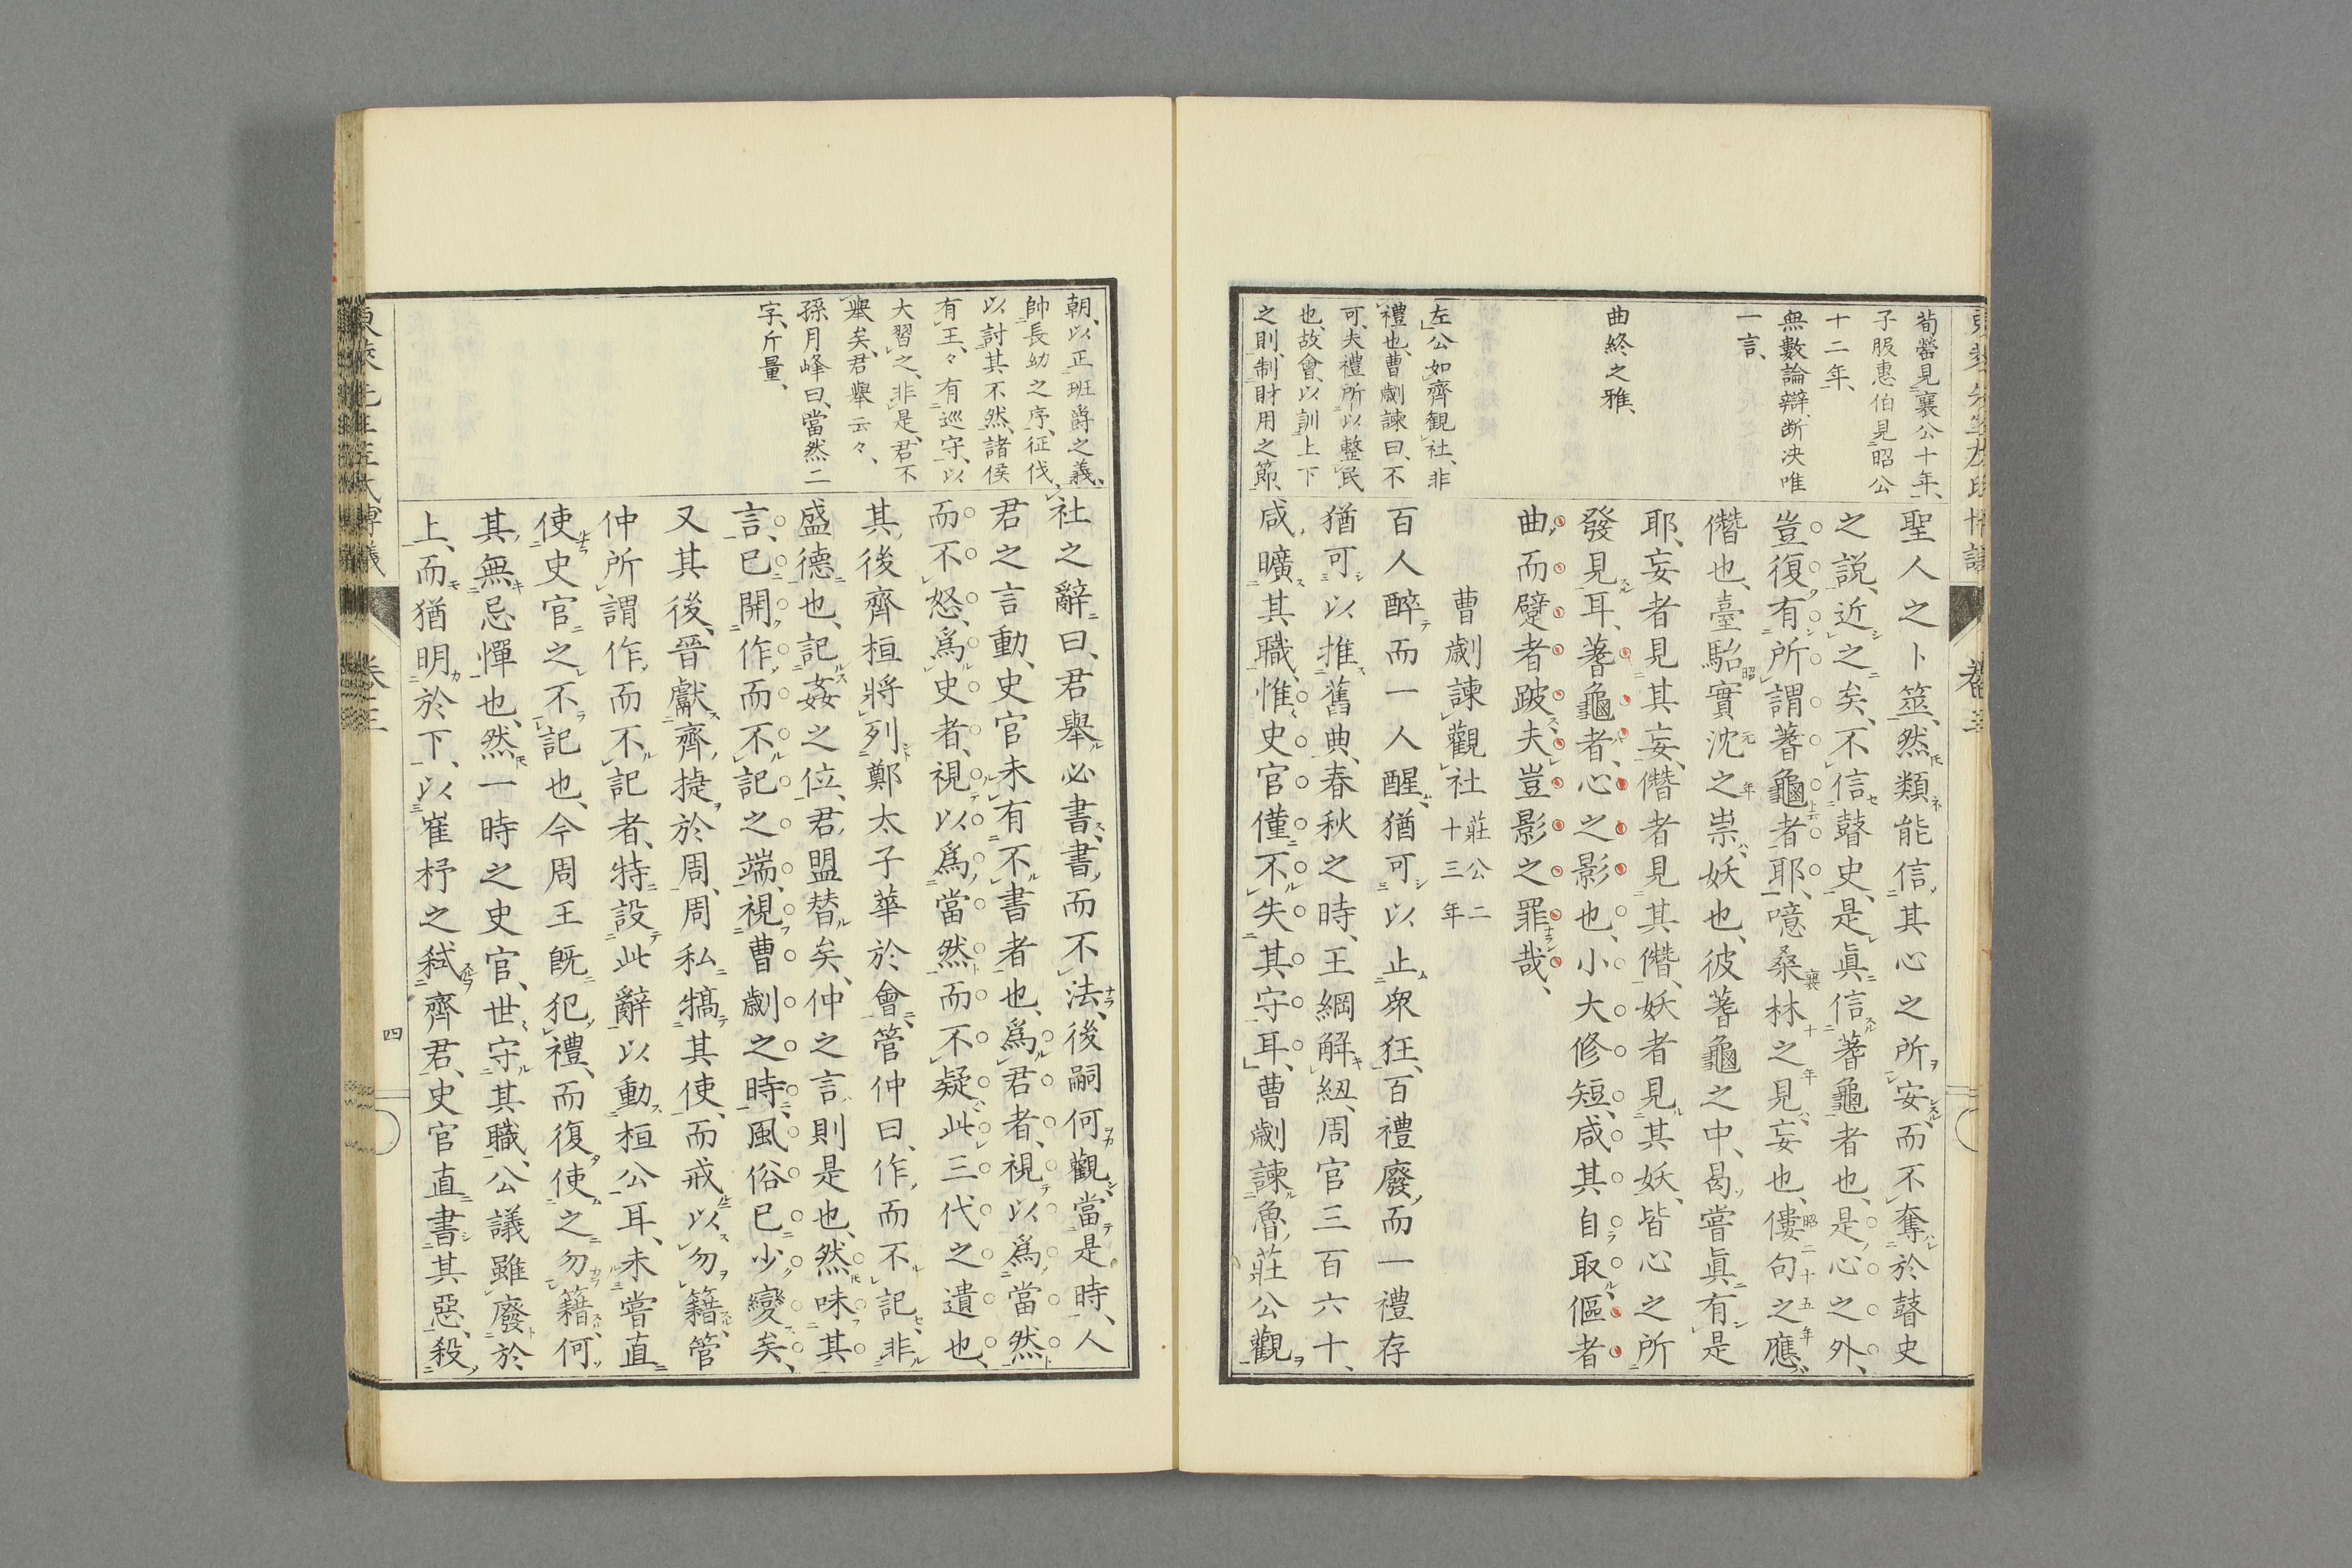 荀罃見襄公十年、
子服惠伯見昭公
十二年、
無數論辯、断决唯
一言、
曲終之雅、
左公如齊観社、非
禮也、曹劌諫曰、不
可、夫禮所以整民
也、故會、以訓上下
之則、制財用之節、
聖人之卜筮、然類能信其心之所安、而不奪於瞽史
之説、近之矣、不信瞽史、是眞信蓍龜者也、是心之外、
豈復有所謂蓍龜者耶、噫桑林之見、妄也、僂句之應、
僭也、臺駘實沈之祟、妖也、彼蓍龜之中、曷嘗眞有是
耶、妄者見其妄、僭者見其僭、妖者見其妖、皆心之所
發見耳、蓍龜者、心之影也、小大修短、咸其自取、傴者
曲、而躄者跛、夫豈影之罪哉、
曹劌諫觀社 莊公二十三年
百人醉而一人醒、猶可以止衆狂、百禮廢、而一禮存
猶可以推舊典、春秋之時、王綱解紐、周官三百六十、
咸曠其職、惟史官僅不失其守耳、曹劌諫魯莊公觀
朝、以正班爵之義、
帥長幼之序、征伐
以討其不然、諸侯
有王、々有巡守、以
大習之、非是、君不
舉矣、君舉云々、
孫月峰曰、當然二
字、斤量、
社之辭曰、君舉必書、書而不法、後嗣何觀、當是時、人
君之言動、史官未有不書者也、爲君者、視以爲當然
而不怒、爲史者、視以爲當然、而不疑、此三代之遺也、
其後齊桓將列鄭太子華於會、管仲曰、作而不記、非
盛德也、記姦之位、君盟替矣、仲之言、則是也、然味其
言、已開作而不記之端、視曹劌之時、風俗已少變矣、
又其後、晉獻齊捷於周、周私犒其使、而戒以勿籍、管
仲所謂作而不記者、特設此辭以動桓公耳、未嘗直
使史官之不記也、今周王既犯禮、而復使之勿籍、何
其無忌憚也、然一時之史官、世守其職、公議雖廢於
上、而猶明於下、以崔杼之弑齊君、史官直書其惡、殺
卷三
四